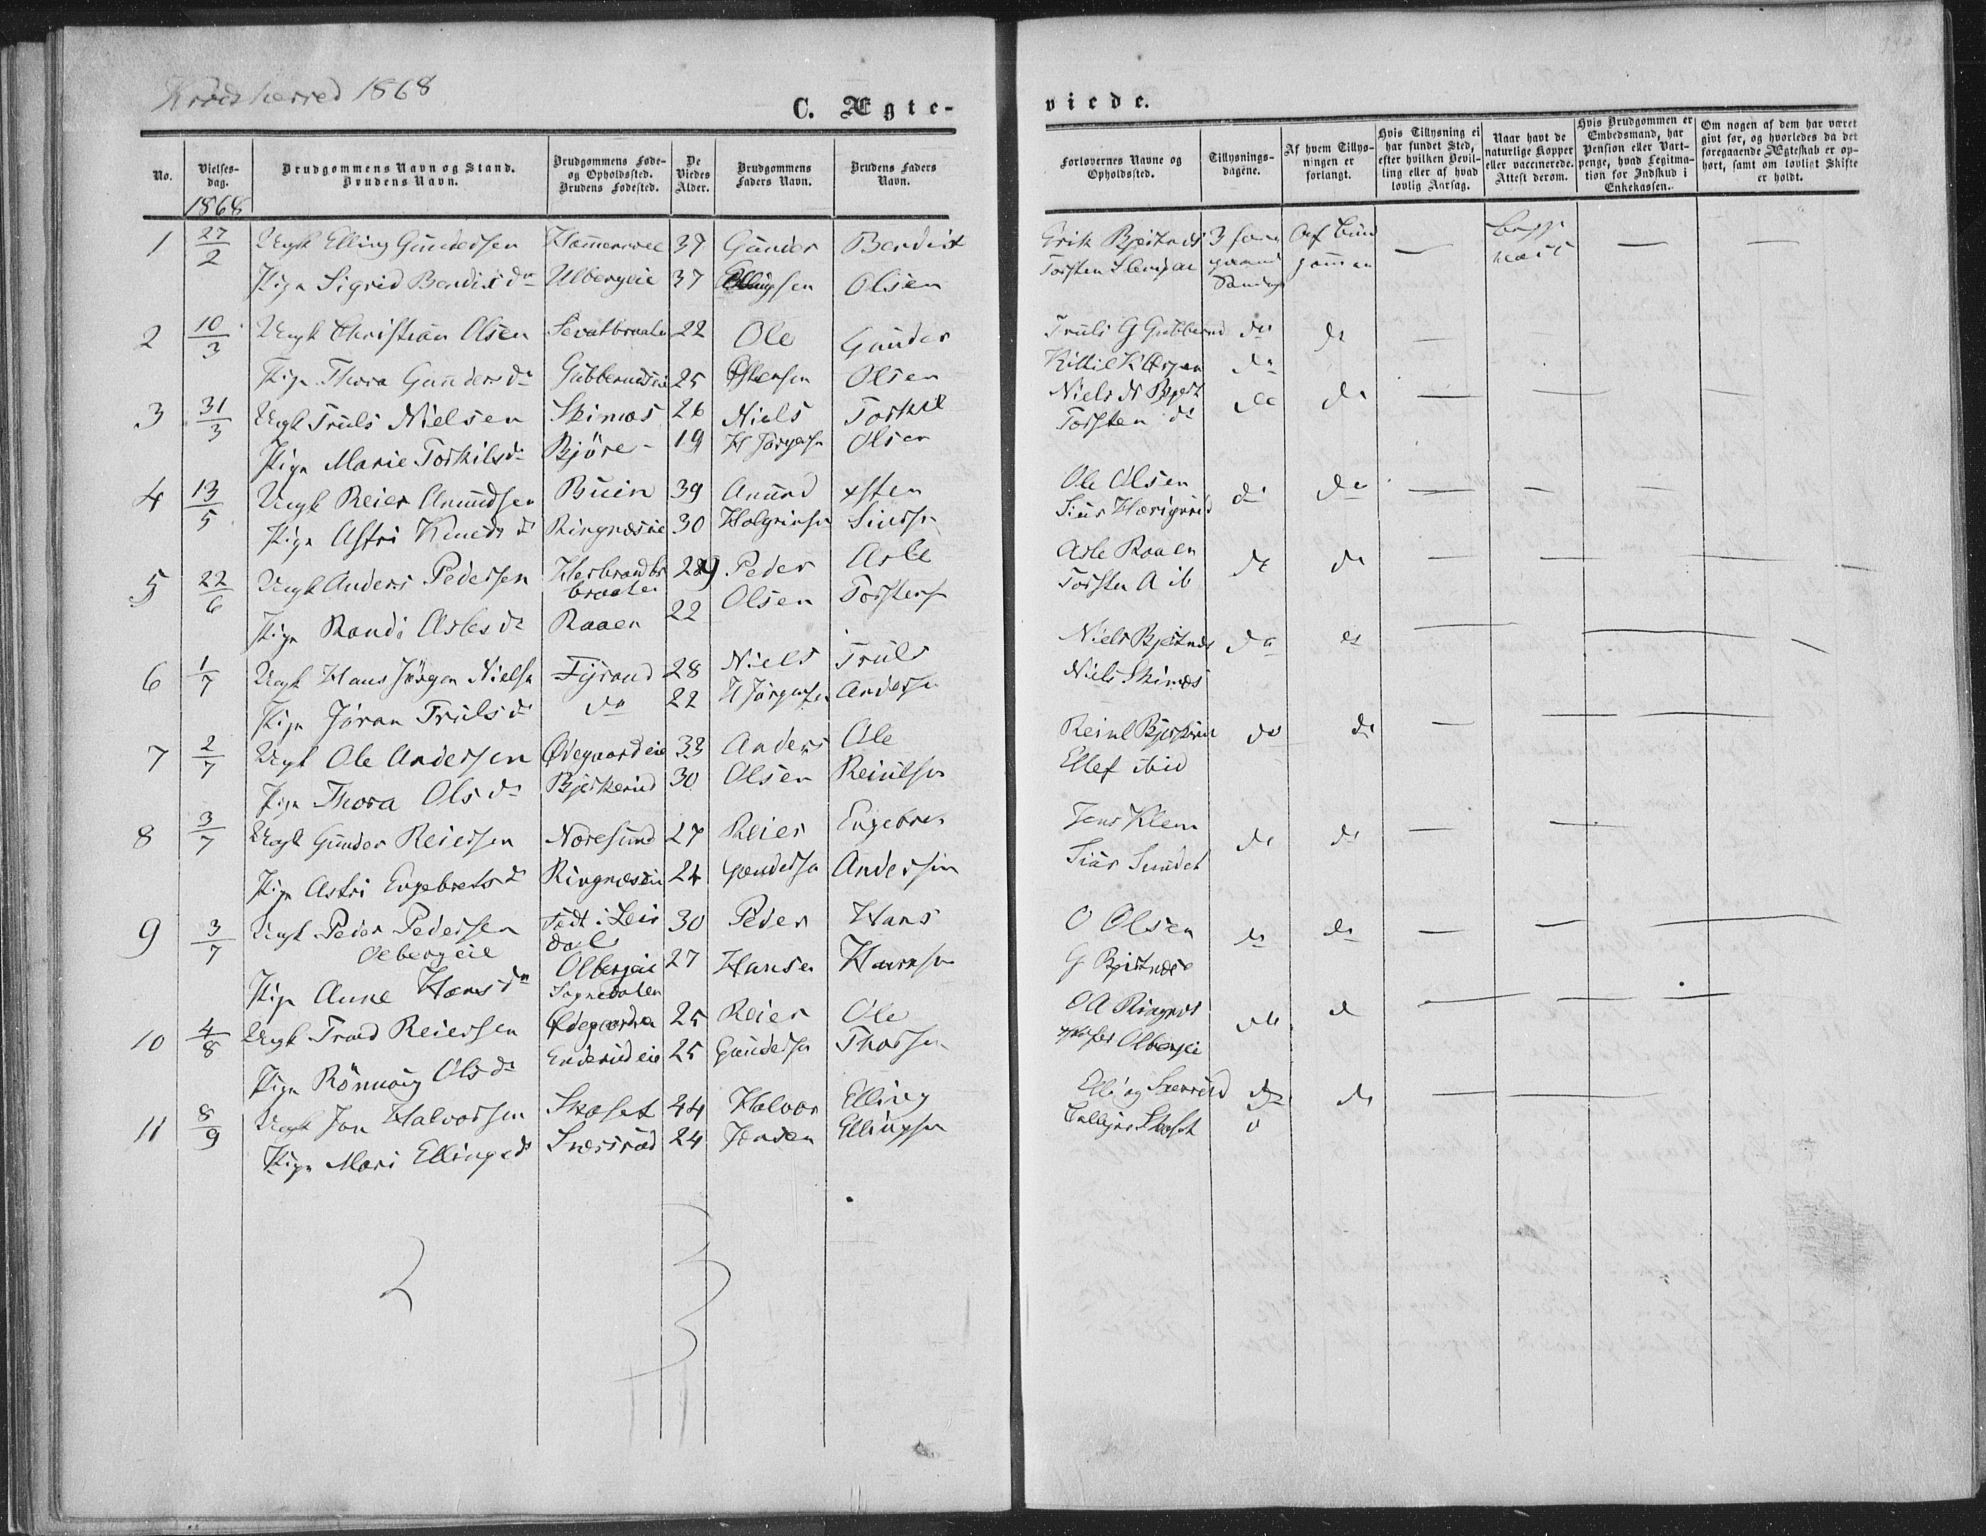 Krødsherred 1868
C. Ægte-
No.
Vielses-
dag.
1868
Brudgommens Navn og Stand.
Brudens Navn.
Brudgommens Føde-
og Opholdssted.
Brudens Fødested.
De
Viedes
Alder.
Brudgommens
Faders Navn.
Brudens Faders
Navn.
1 27/2 Ungk Elling Gundersen 37 Gunder Bendix
Pige Sigrid Bendixdr Ulbergeie 37 Ellingsen Olsen
2 10/3 Ungk Christian Olsen Sevatbraaten 22 Ole Gunder
Pige Thora Gundersdr Gubberudeie 25 Olsen
3 31/3 Ungk Truls Nielsen Skinnes 26 Niels Torkil
Pige Marie Torkilsdr Bjøre 19 H Jørgensen Olsen
4 13/5 Ungk Reier Amundsen Buin 39 Amund
Pige Astri Knudsdr Ringnæseie 30
5 22/6 Ungk Anders Pedersen 29 Peder Asle
braaten
Pige Randi Aslesdr Raaen 22 Olsen Torstens
6 1/7 Ungk Hans Jørgen Nielsen Fyrand 28 Niels Truls
Pige Jøran Trulsdr do 22 H Jørgensen Andersen
7 2/7 Ungk Ole Andersen Ødegaardeie 33 Anders Ole
Pige Thora Olsdr Bjerkerud 30 Olsen Reiulsen
8 3/7 Ungk Gunder Reiersen Noresund 27 Reier Engebret
Pige Astri Engebretsdr Ringnæseie 24 Gundersen Andersen
9 3/7 Ungk Peder Pedersen Født i Leir 30 Peder Hans
Olbergeie dal
Pige Anne Hansdr Olbergeie 27 Hansen Hansen
Sognedalen
10 4/8 Ungk Trond Reiersen Ødegaarden 25 Reier Ole
Pige Rønnaug Olsdr Enderudeie 25 Gundersen Thorsen
11 8/9 Ungk Jon Halvorsen Skaset 44 Halvor Elling
Pige Mari Ellingsdr Snersrud 24 Jonsen Ellingsen
viede.
Forlovernes Navne og
Opholdssted.
Tillysnings-
dagene.
Af hvem Tillys-
ningen er
forlangt.
Hvis Tillysning ei
har fundet Sted,
efter hvilken Bevil-
ling eller af hvad
lovlig Aarsag.
Naar havt de
naturlige Kopper
eller vaccinerede.
Attest derom.
Hvis Brudgommen er
Embedsmand, har
Pension eller Vart-
penge, hvad Legitima-
tion for Indskud i
Enkekassen.
Om nogen af dem har været
givt før, og hvorledes da det
foregaaende Ægteskab er op-
hørt, samt om lovligt Skifte
er holdt.
Erik Bjertnæs 3 Af Brud
Torsten Slevigen gommen
Truls G Gubberud do do
do
Niels N Bjert do do
Torsten do
Ole Olsen do do
Asle Raaen do do
Torsten A ib
Niels Bjertnæs do do
Niels Skinnes
Reiul Bjerkerud do do
Ellef ibid
Jens Klem do do
Siur Sundet
O Olsen do do
G Bjertnæs
O A Ringnes do do
Olbergeie
Elling Snersrud do do
Skaset